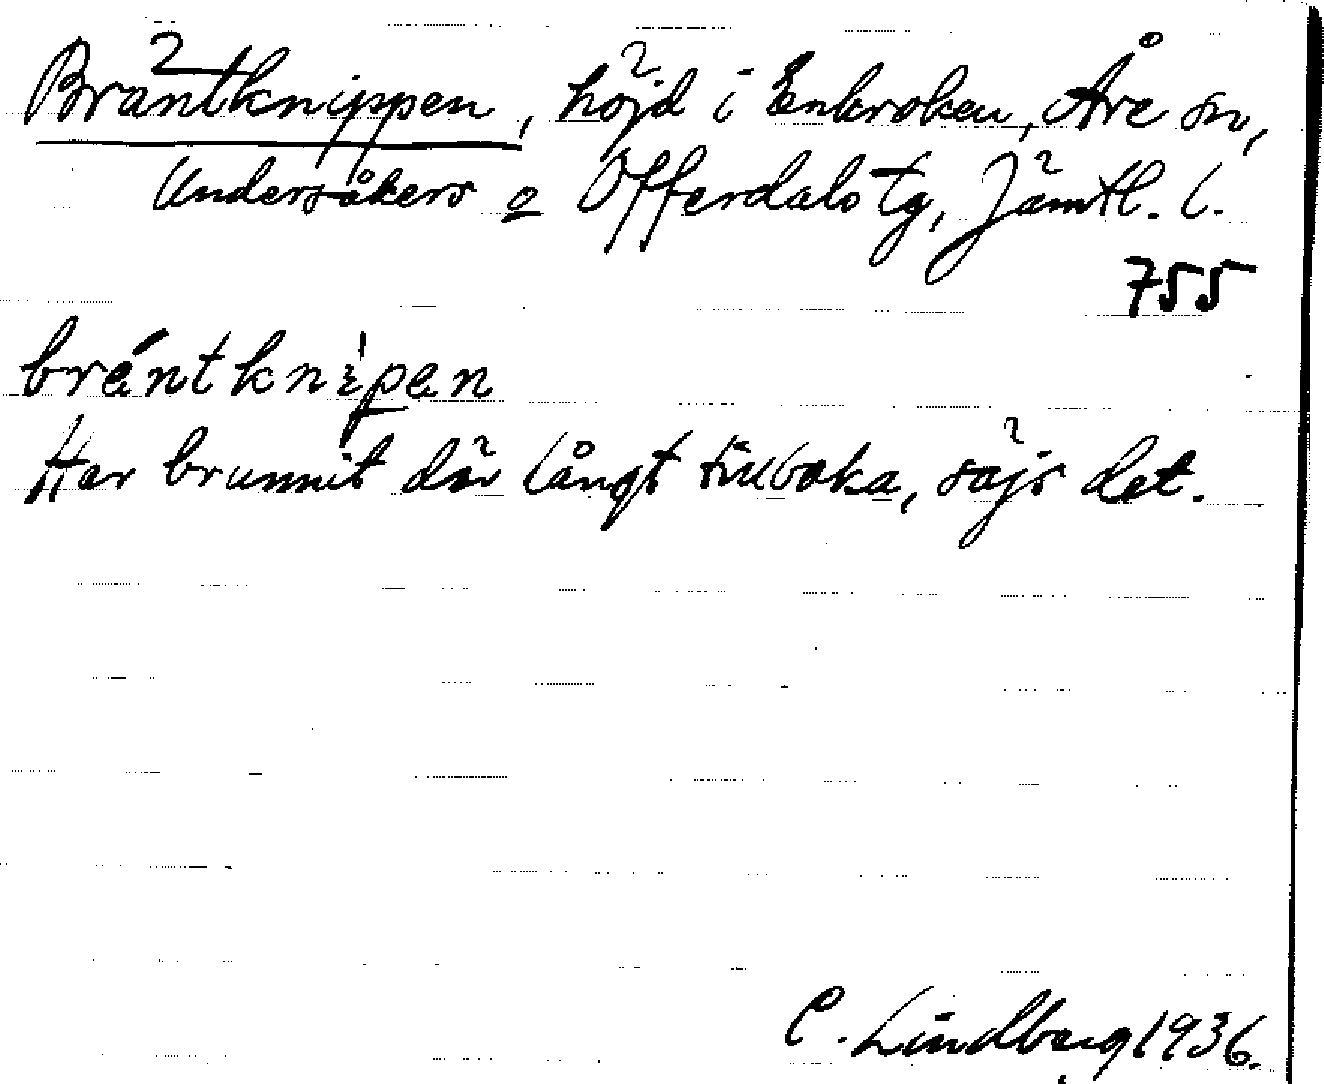 Bräntknippen, höjd i Enkroken, Åre sn,
Undersåkers o Offerdals tg, Jämtl. l.
755
bräntknipen
Har brunnit där långt tillbaka, säjs det.
C. Lindberg 1936.